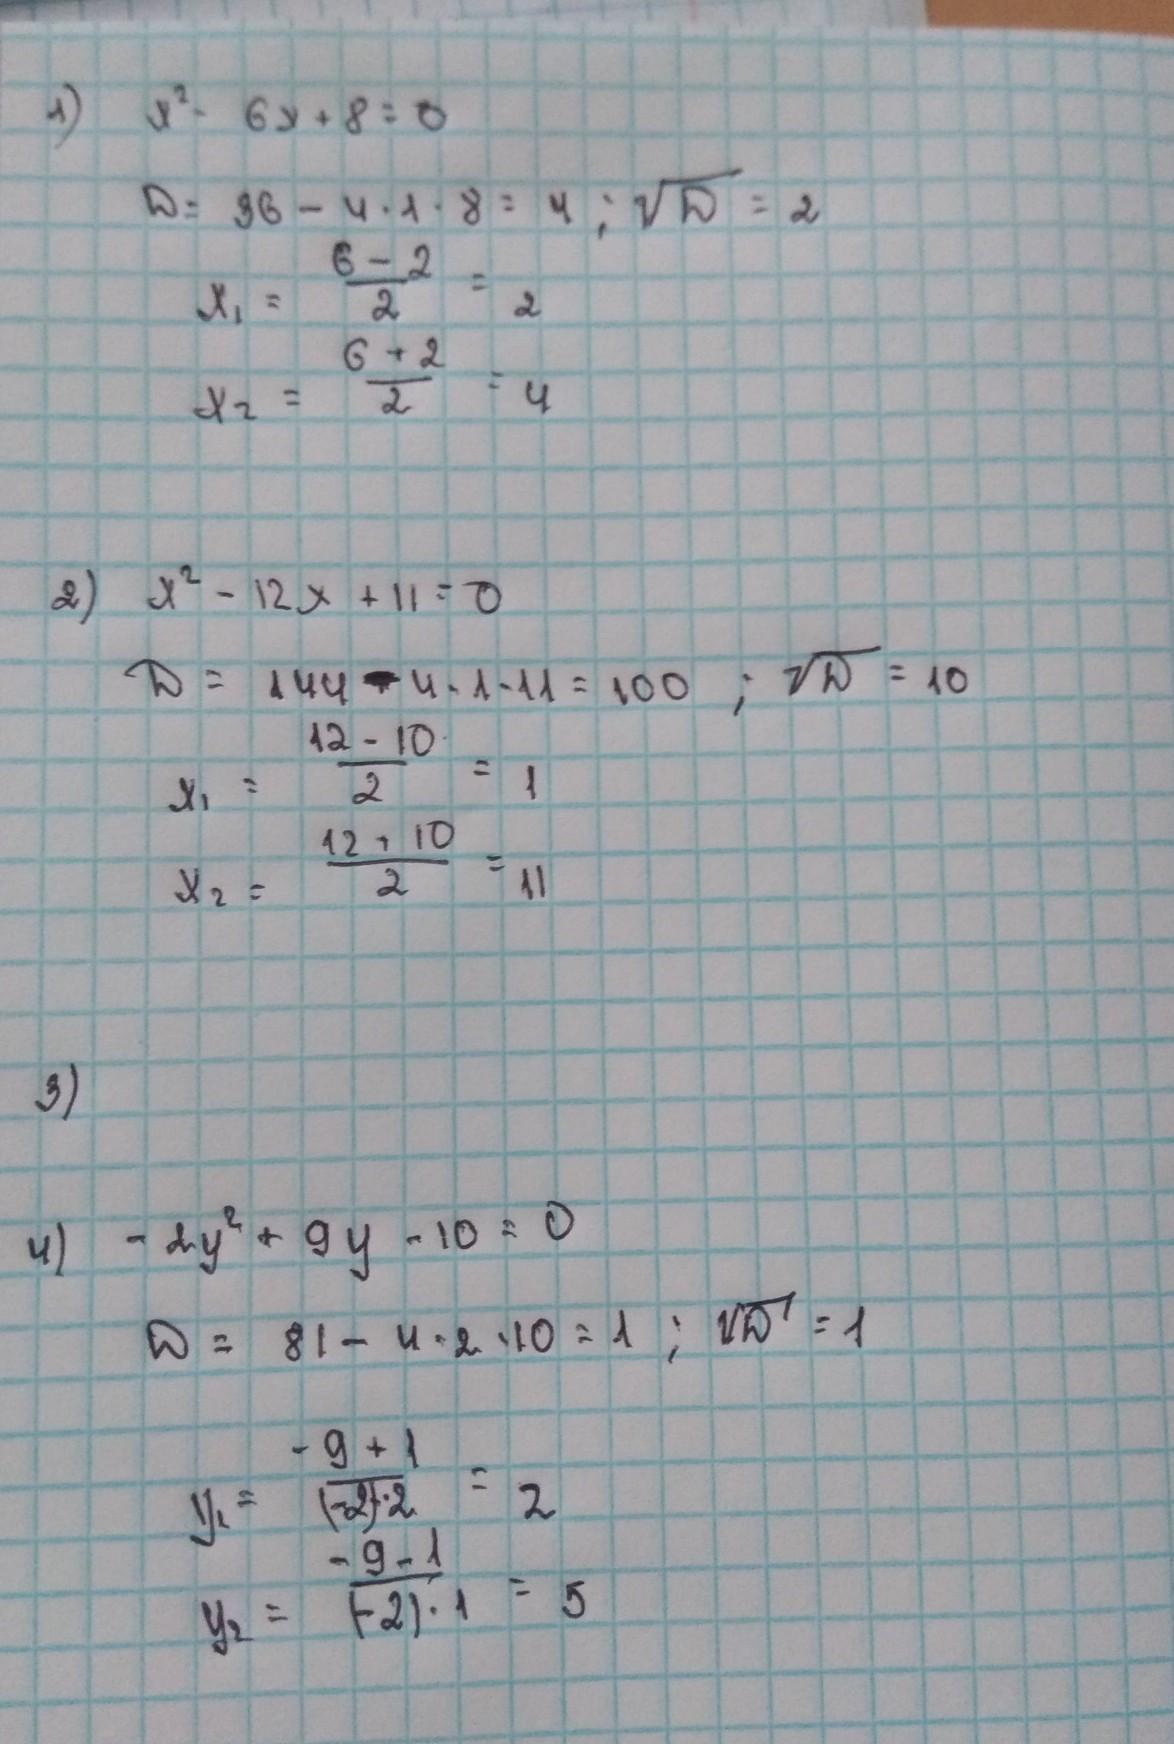 1) x² - 6x + 8 = 0
D = 36 - 4·1·8 = 4 ; √D = 2
x₁ = (6 - 2)/2 = 2
x₂ = (6 + 2)/2 = 4
2) x² - 12x + 11 = 0
D = 144 - 4·1·11 = 100 ; √D = 10
x₁ = (12 - 10)/2 = 1
x₂ = (12 + 10)/2 = 11
3)
4) - 2y² + 9y - 10 = 0
D = 81 - 4·2·10 = 1 ; √D = 1
y₁ = (-9 + 1)/((-2)·2) = 2
y₂ = (-9 - 1)/((-2)·1) = 5